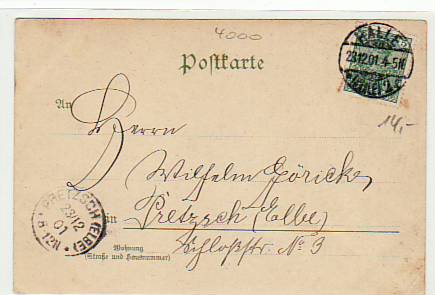 4000
HALLE
23.12.01.4-5N.
Postkarte
14,-
An
Herrn
Wilhelm Göricke,
in Pretzsch (Elbe)
Schloßstr. No 9
Wohnung
(Straße und Hausnummer)
PRETZSCH (ELBE)
23/12
01
8-12N.